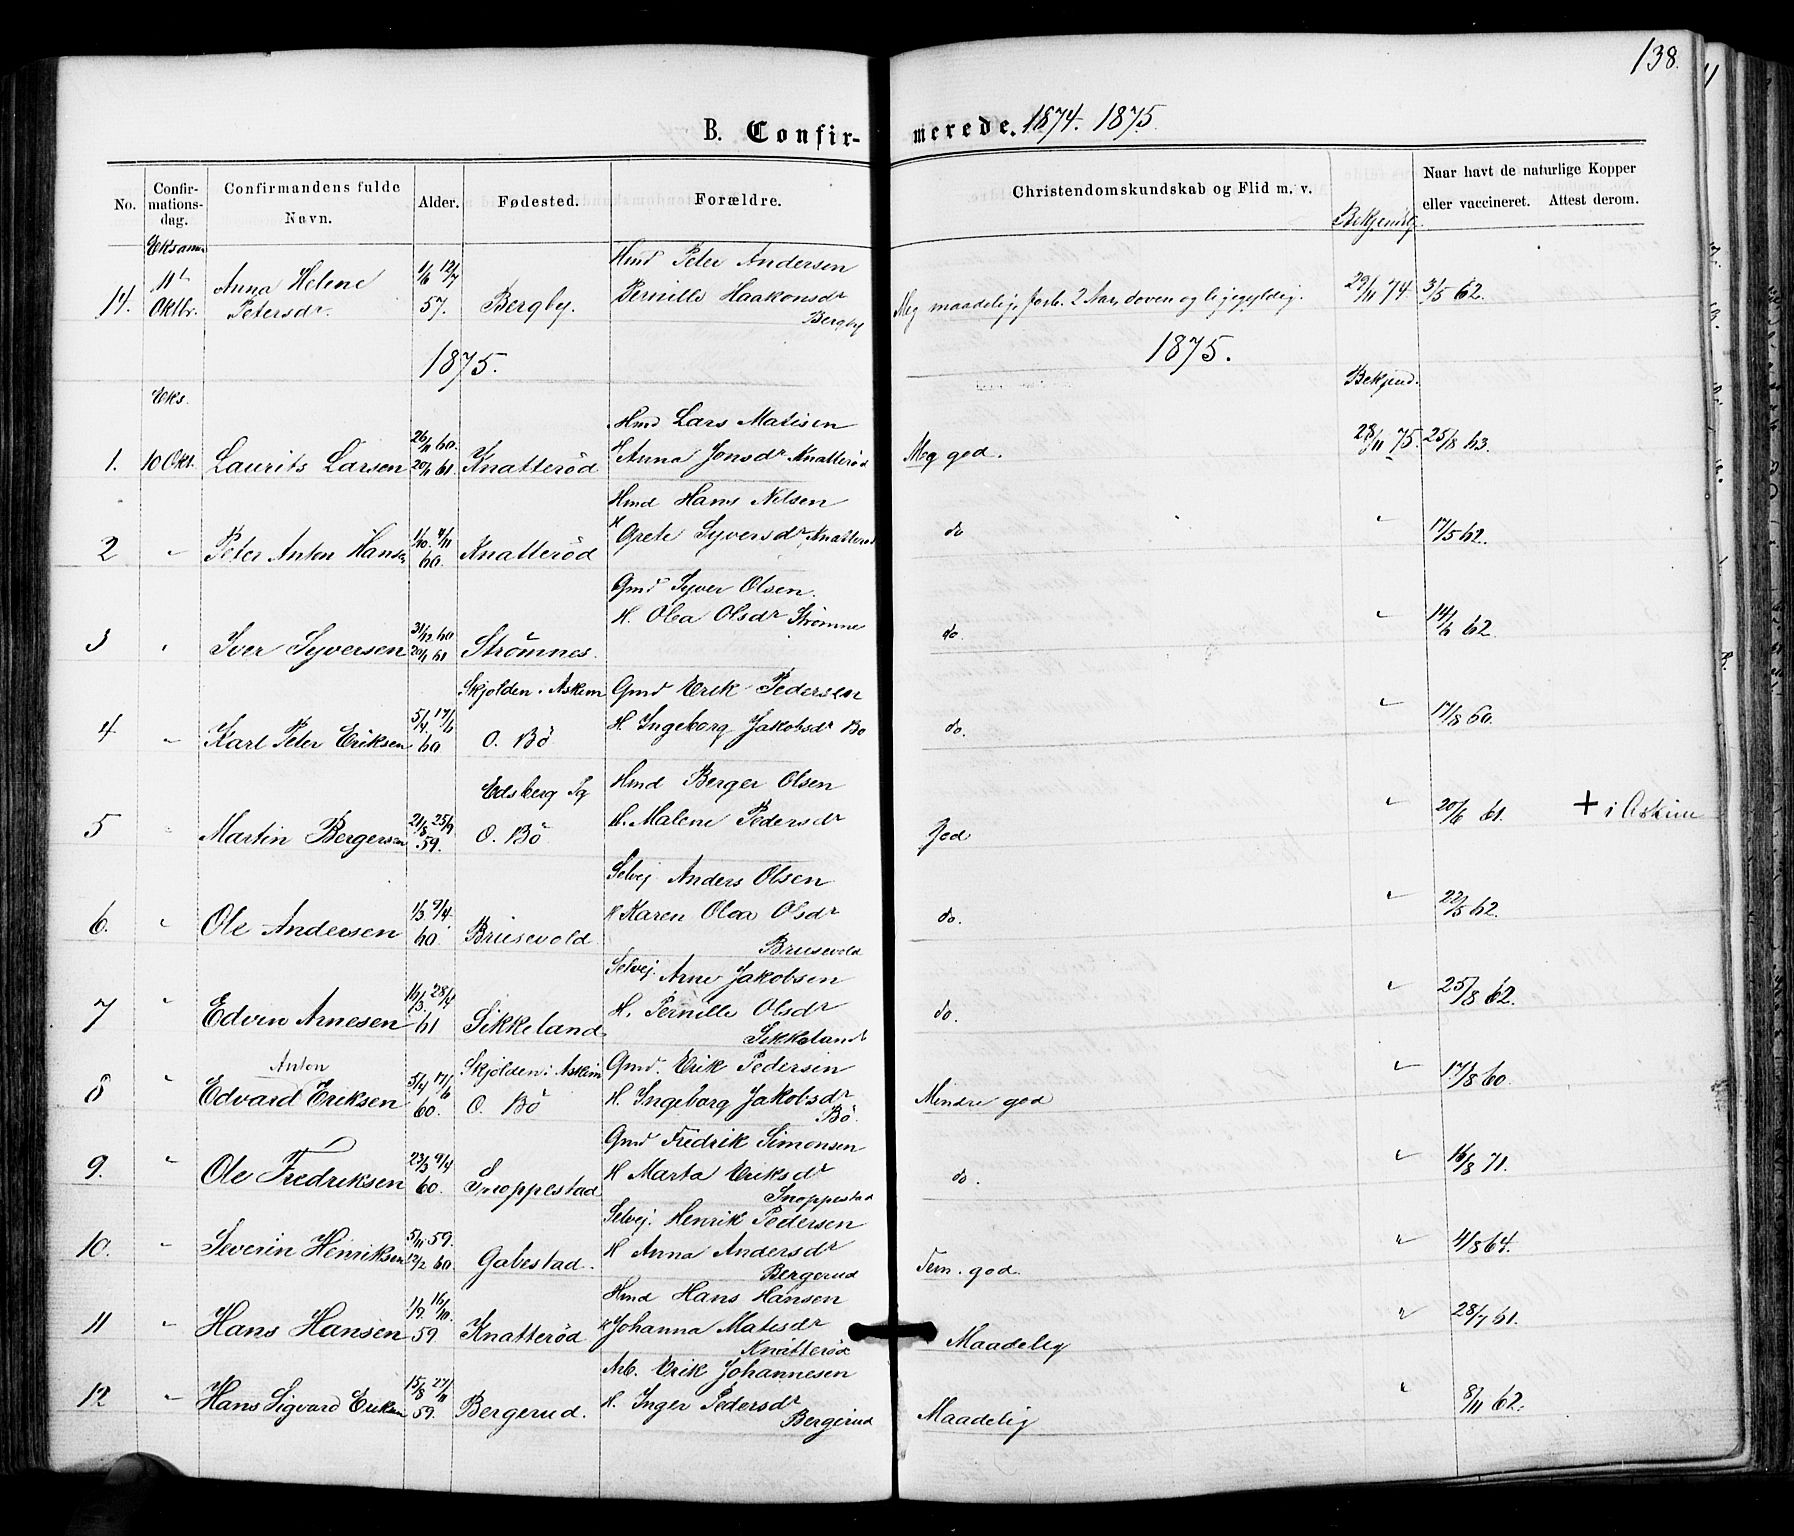 138.
B. Confirmerede. 1874. 1875
No. Confirmationsdag. Confirmandens fulde Navn. Alder. Fødested. Forældre. Christendomskundskab og Flid m. v. Bekjendtg. Naar havt de naturlige Kopper eller vaccineret. Attest derom.
Eksamen
Hmd Peter Andersen
14. 11te Oktbr. Anna Helene Petersdr 1/6 12/7 57. Bergby. Pernille Haakonsdr Bergby Meg maadelig, forb. 2 Aar, doven og ligegyldig. 29/11 74. 3/5 62.
1875. 1875.
Eks. Bekjend.
Hmd Lars Matisen
1. 10 Okt. Laurits Larsen 26/11 60. 20/1 61. Knatterød H Anna Jonsdr Knatterød Meg god. 28/11 75. 25/8 63.
Hmd Hans Nilsen
2 " Peter Anton Hansen 1/10. 4/11 60. Knatterød H Grete Syversdr Knatterød do " 17/5 62.
Gmd Syver Olsen.
3 " Iver Syversen 31/12 60 20/1 61 Strømnes. H. Olea Olsdr Strømne do. " 14/6 62.
Skjolden i Askim Gmd Erik Pedersen
4 " Karl Peter Eriksen 5/4. 17/6 60 O. Bö H. Ingeborg Jakobsdr Bö do. " 17/8 60.
Edsberg Pg Hmd Berger Olsen
5 " Martin Bergersen 21/8 25/9 59. O. Bö H. Malene Pedersdr God " 20/6 61. + i Askim
Selvej. Anders Olsen
6. " Ole Andersen 1/3 9/4 60. Brusevold H Karen Olea Olsdr Brusevold do. " 22/5 62.
Selvej. Arne Jakobsen
7 " Edvin Arnesen 16/3. 28/4 61 Sikkeland H. Pernille Olsdr Sikkeland do. " 25/8 62.
Anton Skjolden i Askim Gmd. Erik Pedersen
8 " Edvard Eriksen 5/4 17/6 60. O. Bö H. Ingeborg Jakobsdr Bö. Mindre god " 17/8 60.
Gmd Fredrik Simonsen
9. " Ole Fredriksen 23/3 9/4 60. Snoppestad H Marta Eriksdr Snoppestad do. " 16/8 71.
Selvej. Henrik Pedersen
10. " Severin Henriksen 5/11 59. 12/2 60. Gabestad. H Anna Andersdr Bergerud Tem. god. " 4/8 64.
Hmd Hans Hansen
11 " Hans Hansen 1/9. 16/10. 59. Knatterød H Johanna Matisdr Knatterød Maadelig " 28/7 61.
Arb. Erik Johannesen
12 " Hans Sigvard Eriksen 15/8 27/11 59. Bergerud. H. Inger Pedersdr Bergerud Maadelig " 8/11 62.